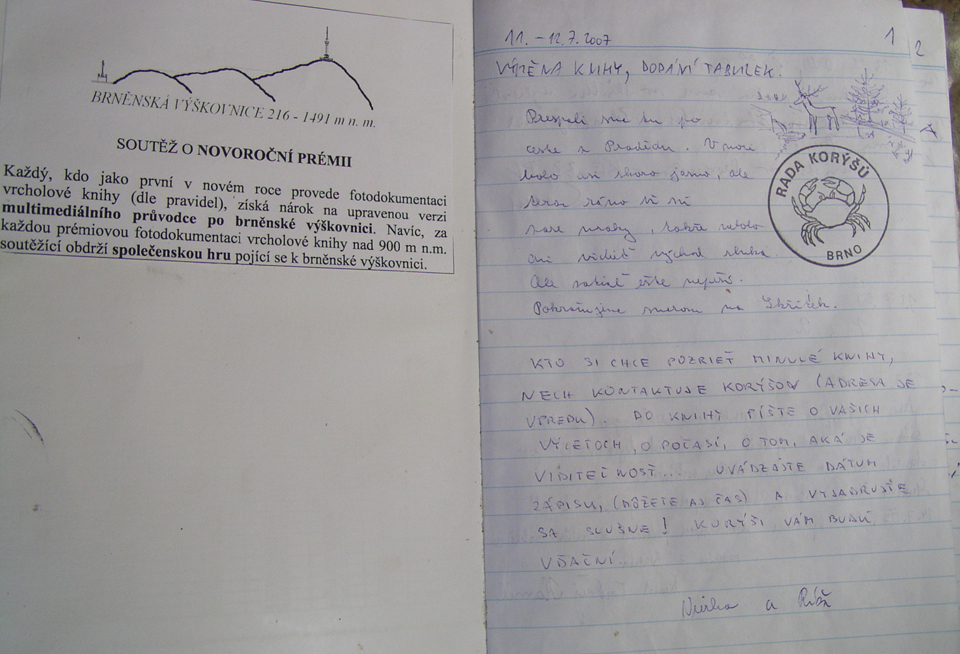 BRNĚNSKÁ VÝŠKOVNICE 216 - 1491 m n. m.
SOUTĚŽ O NOVOROČNÍ PRÉMII
Každý, kdo jako první v novém roce provede fotodokumentaci
vrcholové knihy (dle pravidel), získá nárok na upravenou verzi
multimediálního průvodce po brněnské výškovnici. Navíc, za
každou prémiovou fotodokumentaci vrcholové knihy nad 900 m n.m.
soutěžící obdrží společenskou hru pojící se k brněnské výškovnici.
11. - 12.7.2007
1
2
VÝMĚNA KNIHY, DODÁNÍ TABULEK.
Prespali sme tu po
ceste z Pradědu. V noci
bolo asi skoro jasno, ale
teraz ráno
Pokračujeme smerom na
RADA KORÝŠŮ
BRNO
KTO SI CHCE POZRIEŤ MINULÉ KNIHY,
NECH KONTAKTUJE KORÝŠOV (ADRESA JE
VPREDU). DO KNIHY PÍŠTE O VAŠICH
VÝLETOCH, O POČASÍ, O TOM, AKÁ JE
VIDITEĽNOSŤ... UVÁDZAJTE DÁTUM
ZÁPISU, (MÔŽETE AJ ČAS) A VYJADRUJTE
SA SLUŠNE! KORÝŠI VÁM BUDÚ
VĎAČNÍ.
a